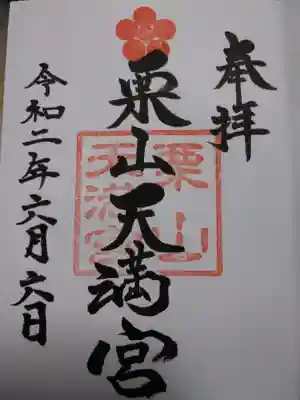 奉拝
栗山天満宮
栗山
天満宮
令和二年六月六日